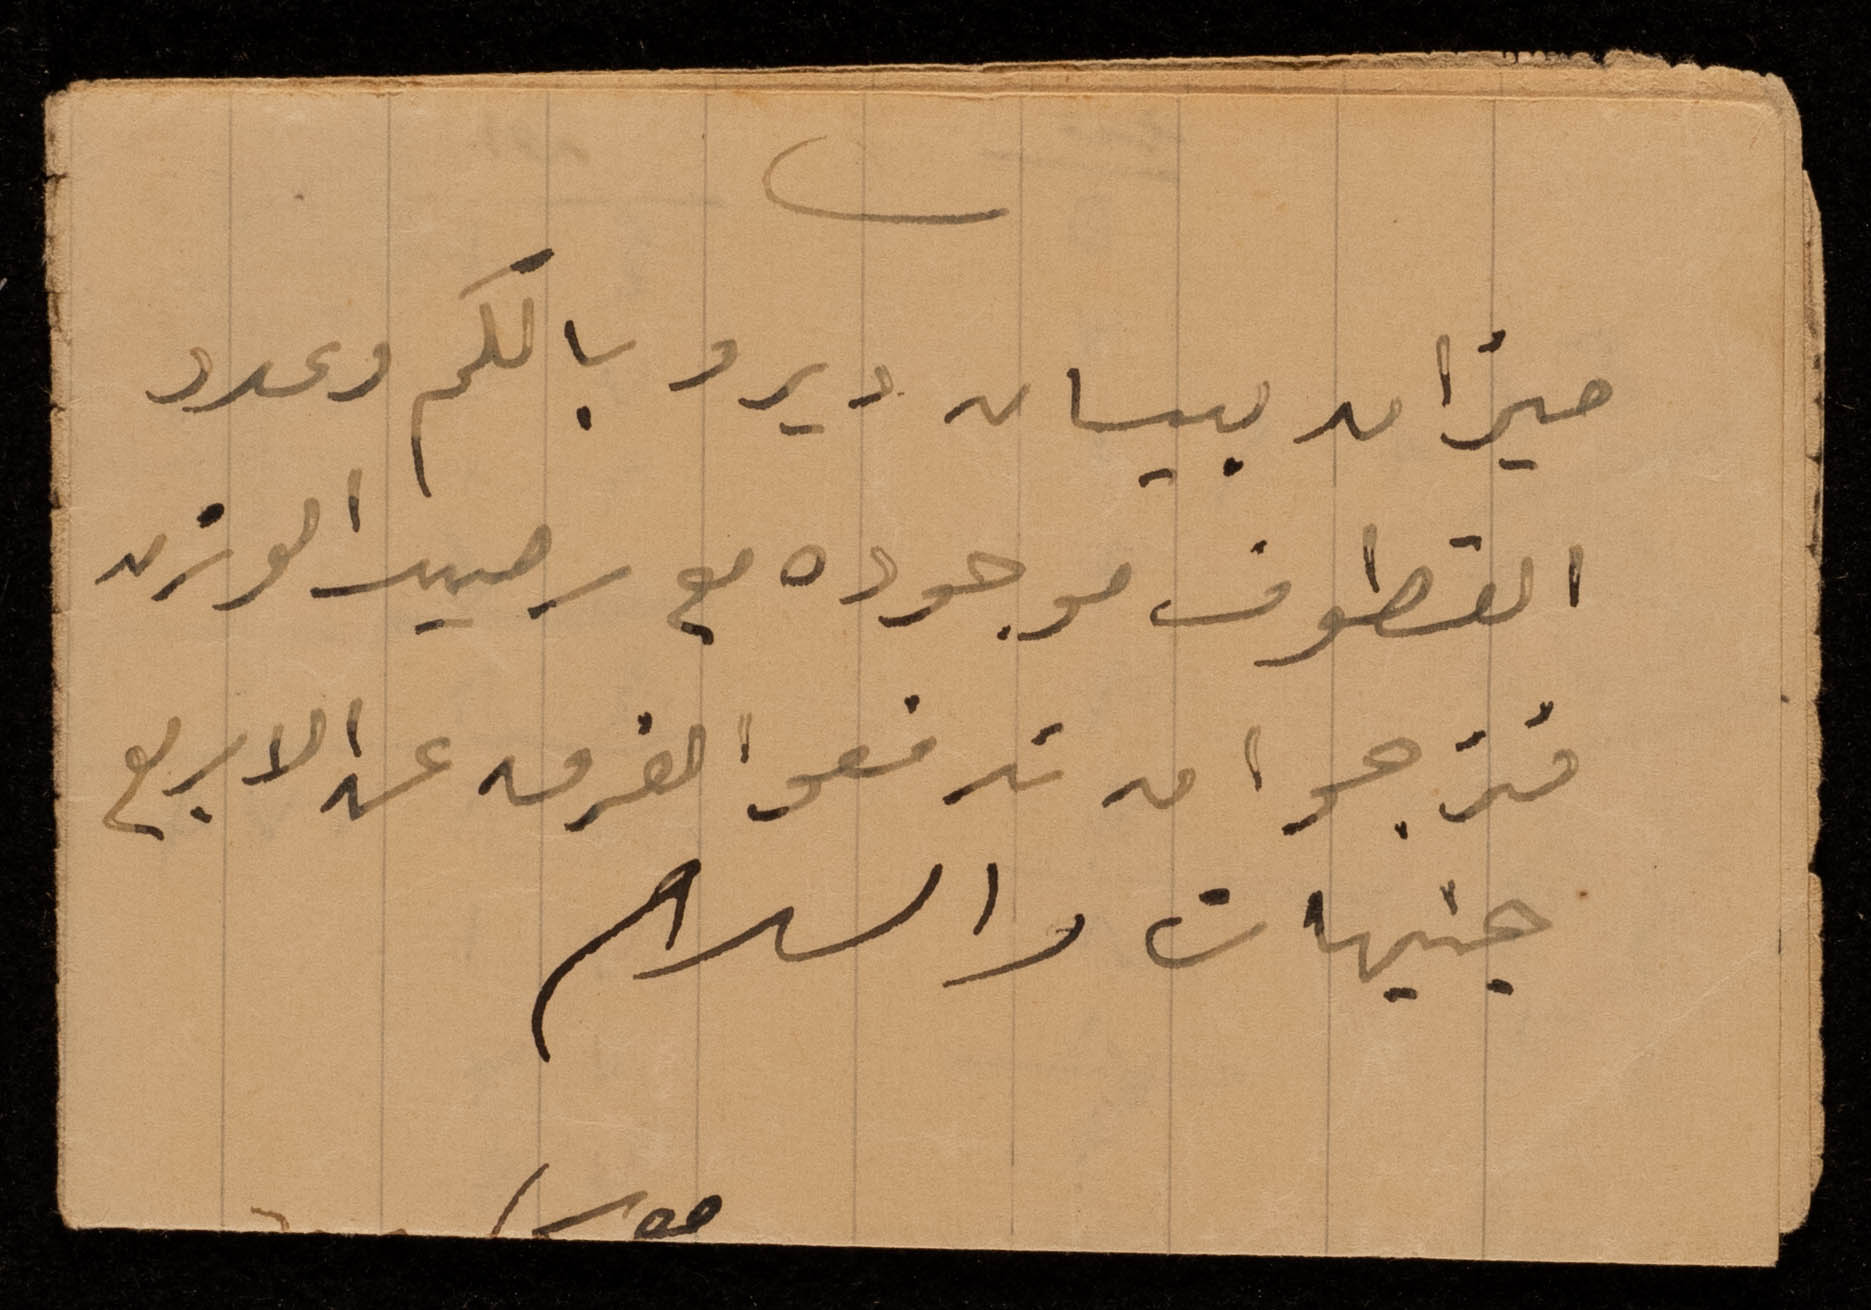 ميزان بيسان ديرو بالكم وعدد
القطوف موجوده مع رصيد الوزن
فنرجوا ان تدفعوا الفرق عن الاربع
جنيهات والسلام